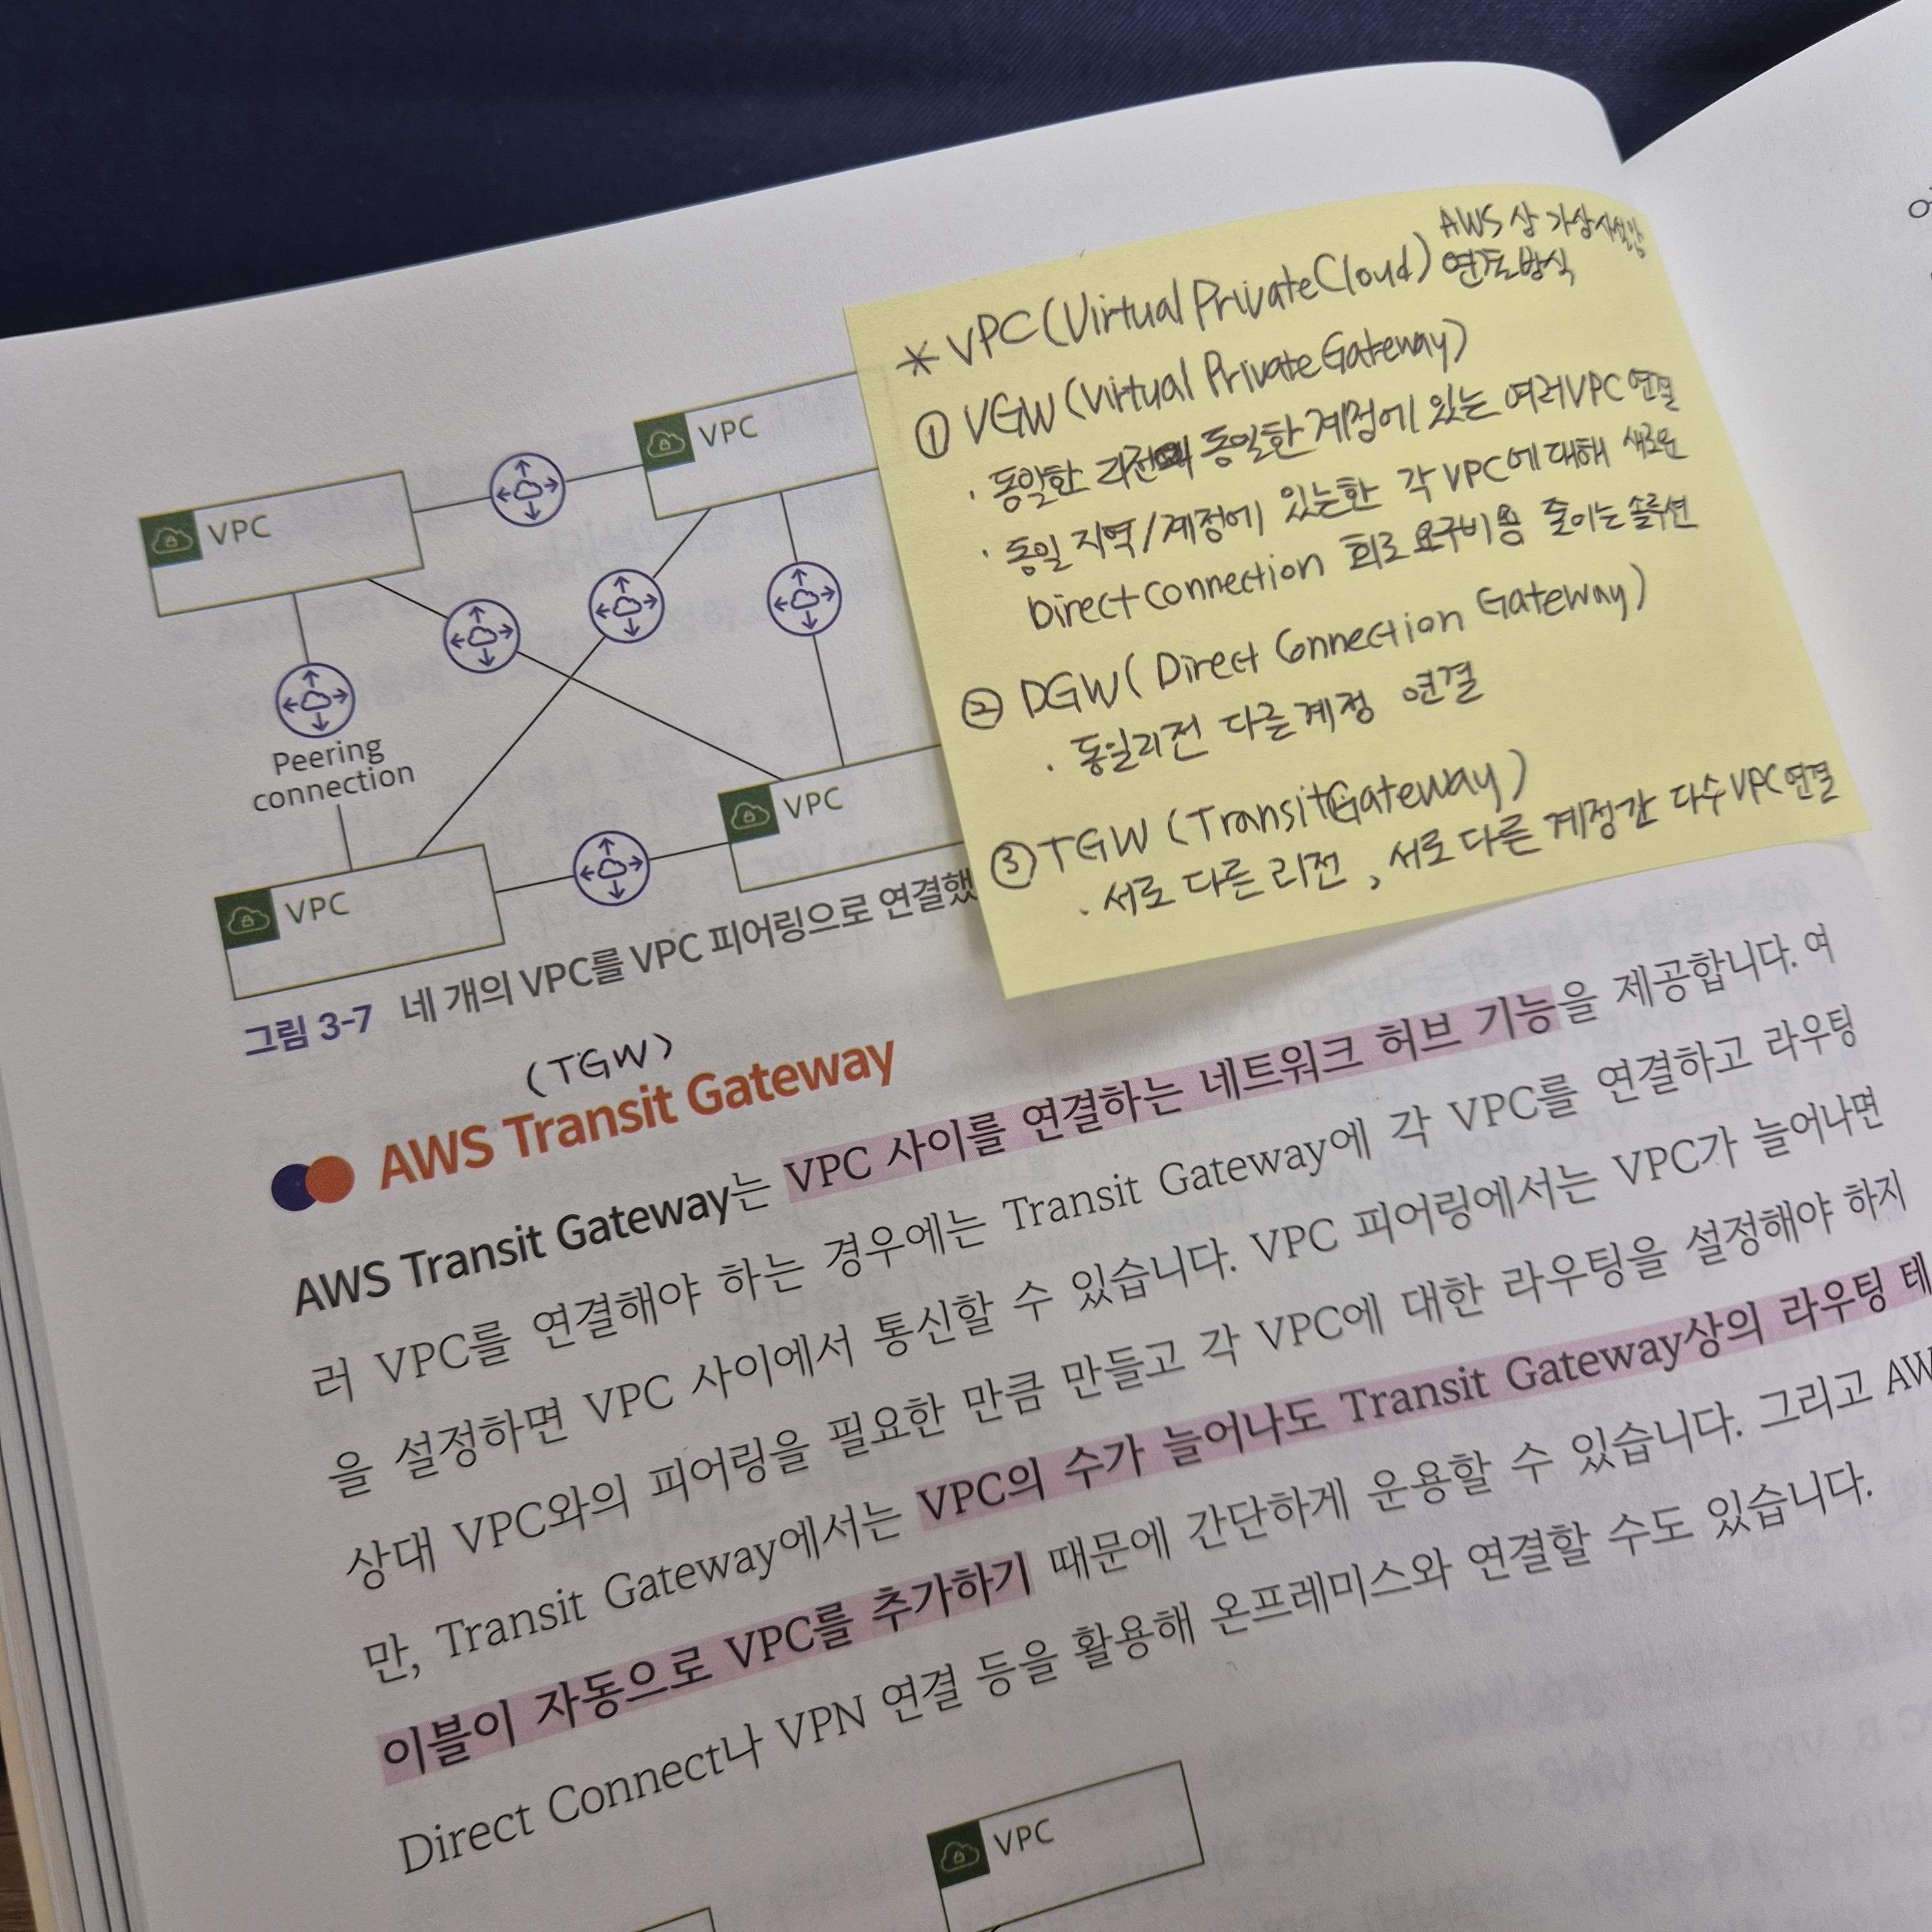 VPC
VPC
Peering
connection
VPC
VPC
그림 3-7 네 개의 VPC를 VPC 피어링으로 연결했
* VPC (Virtual Private Cloud) AWS 상 가상사설망
연결방식
① VGW (Virtual Private Gateway)
· 동일한 리전의 동일한 계정에 있는 여러 VPC 연결
· 동일 지역/계정에 있는한 각 VPC에 대해 새로운
Direct Connection 회로 요구비용 줄이는 솔루션
② DGW ( Direct Connection Gateway)
· 동일리전 다른계정 연결
③ TGW (Transit Gateway)
· 서로 다른 리전, 서로 다른 계정간 다수 VPC 연결
(TGW)
AWS Transit Gateway
AWS Transit Gateway는 VPC 사이를 연결하는 네트워크 허브 기능을 제공합니다. 여
러 VPC를 연결해야 하는 경우에는 Transit Gateway에 각 VPC를 연결하고 라우팅
을 설정하면 VPC 사이에서 통신할 수 있습니다. VPC 피어링에서는 VPC가 늘어나면
상대 VPC와의 피어링을 필요한 만큼 만들고 각 VPC에 대한 라우팅을 설정해야 하지
만, Transit Gateway에서는 VPC의 수가 늘어나도 Transit Gateway상의 라우팅 테
이블이 자동으로 VPC를 추가하기 때문에 간단하게 운용할 수 있습니다. 그리고 AW
Direct Connect나 VPN 연결 등을 활용해 온프레미스와 연결할 수도 있습니다.
VPC